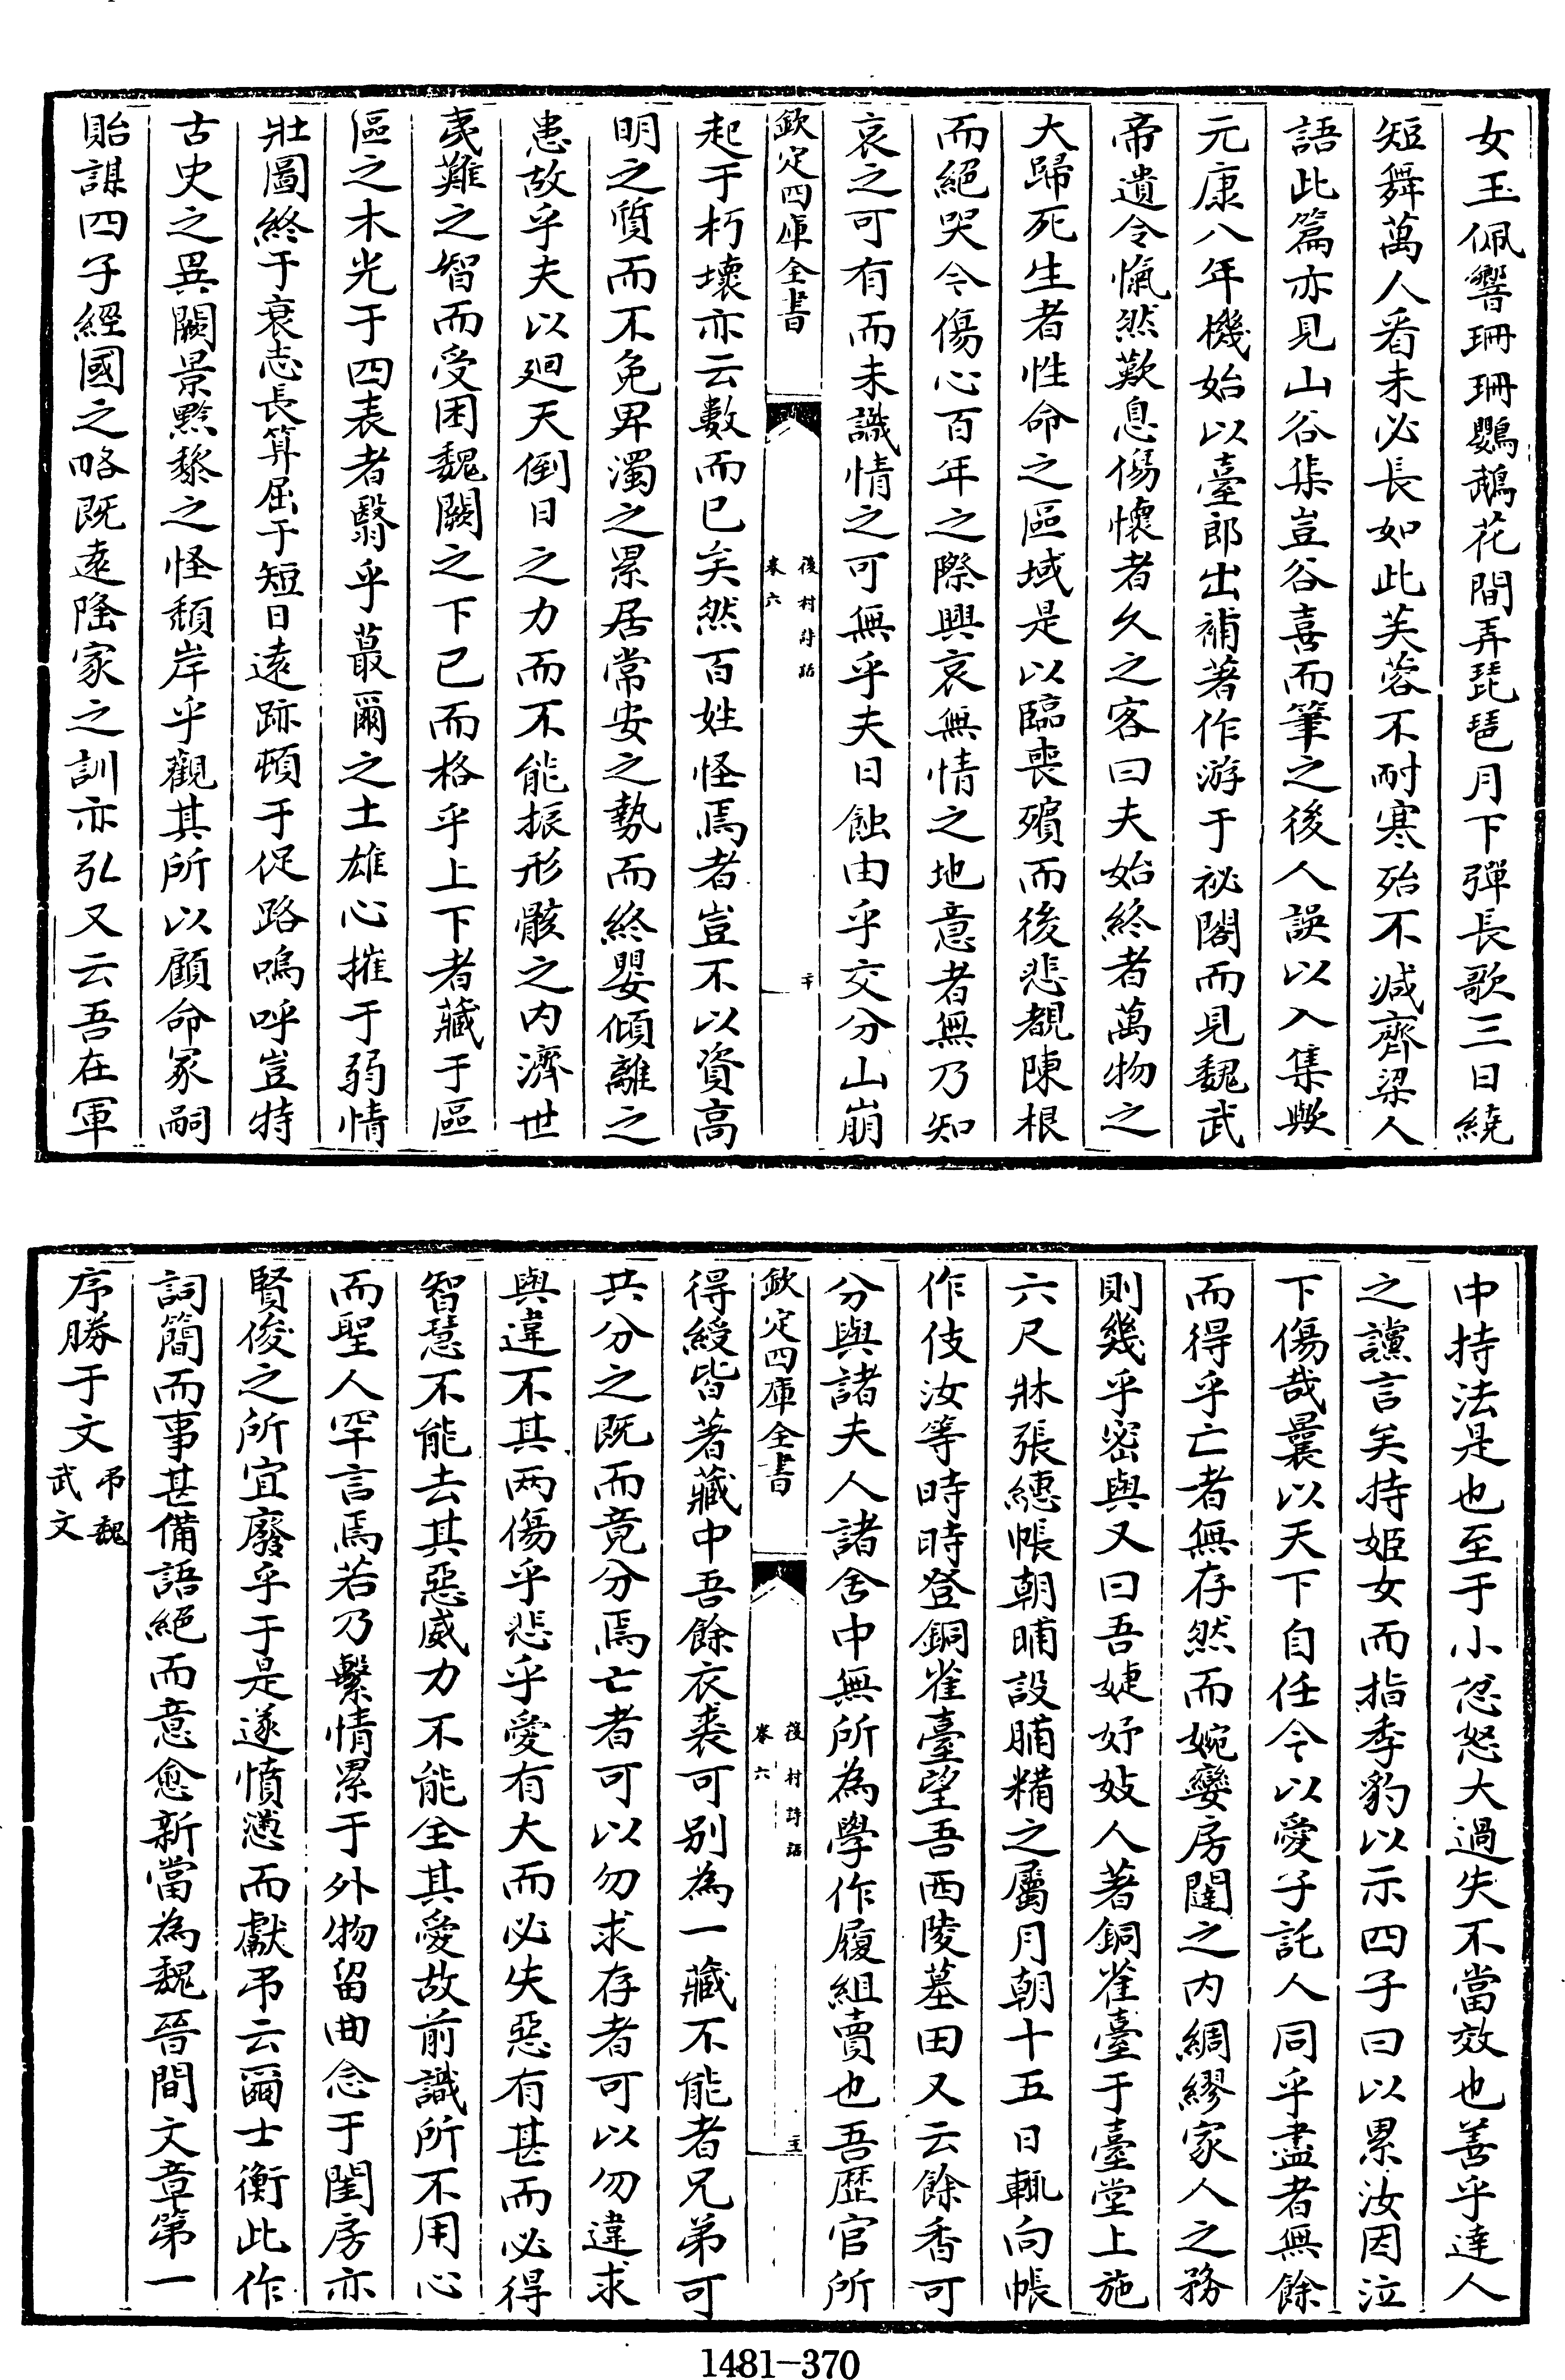 女玉佩響珊珊鸚鵡花間弄琵琶月下彈長歌三日繞
短舞萬人看未必長如此芙蓉不耐寒殆不減齊梁人
語此篇亦見山谷集豈谷喜而筆之後人誤以入集歟
元康八年機始以臺郎出補著作游于祕閣而見魏武
帝遺令愾然歎息傷懷者久之客曰夫始終者萬物之
大歸死生者性命之區域是以臨喪殯而後悲覩陳根
而絕哭今傷心百年之際興哀無情之地意者無乃知
哀之可有而未識情之可無乎夫日蝕由乎交分山崩
欽定四庫全書
後村詩話
卷六
二十
起于朽壞亦云數而已矣然百姓怪焉者豈不以資高
明之質而不免卑濁之累居常安之勢而終嬰傾離之
患故乎夫以廻天倒日之力而不能振形骸之內濟世
夷難之智而受困魏闕之下已而格乎上下者藏于區
區之木光于四表者翳乎蕞爾之土雄心摧于弱情
壯圖終于衰志長算屈于短日遠跡頓于促路嗚呼豈特
古史之異闕景黔黎之怪頹岸乎觀其所以顧命冢嗣
貽謀四子經國之略既遠隆家之訓亦弘又云吾在軍
中持法是也至于小忿怒大過失不當效也善乎達人
之讜言矣持姬女而指季豹以示四子曰以累汝因泣
下傷哉曩以天下自任今以愛子託人同乎盡者無餘
而得乎亡者無存然而婉孌房闥之內綢繆家人之務
則幾乎密與又曰吾婕妤妓人著銅雀臺于臺堂上施
六尺牀張繐帳朝晡設脯糒之屬月朝十五日輒向帳
作伎汝等時時登銅雀臺望吾西陵墓田又云餘香可
分與諸夫人諸舍中無所為學作履組賣也吾歷官所
欽定四庫全書
後村詩話
卷六
得綬皆著藏中吾餘衣裘可別為一藏不能者兄弟可
共分之既而竟分焉亡者可以勿求存者可以勿違求
與違不其兩傷乎悲乎愛有大而必失惡有甚而必得
智慧不能去其惡威力不能全其愛故前識所不用心
而聖人罕言焉若乃繫情累于外物留曲念于閨房亦
賢俊之所宜廢乎于是遂憤懣而獻弔云爾士衡此作
詞簡而事甚備語絕而意愈新當為魏晉間文章第一
序勝于文弔魏武文
1481-370